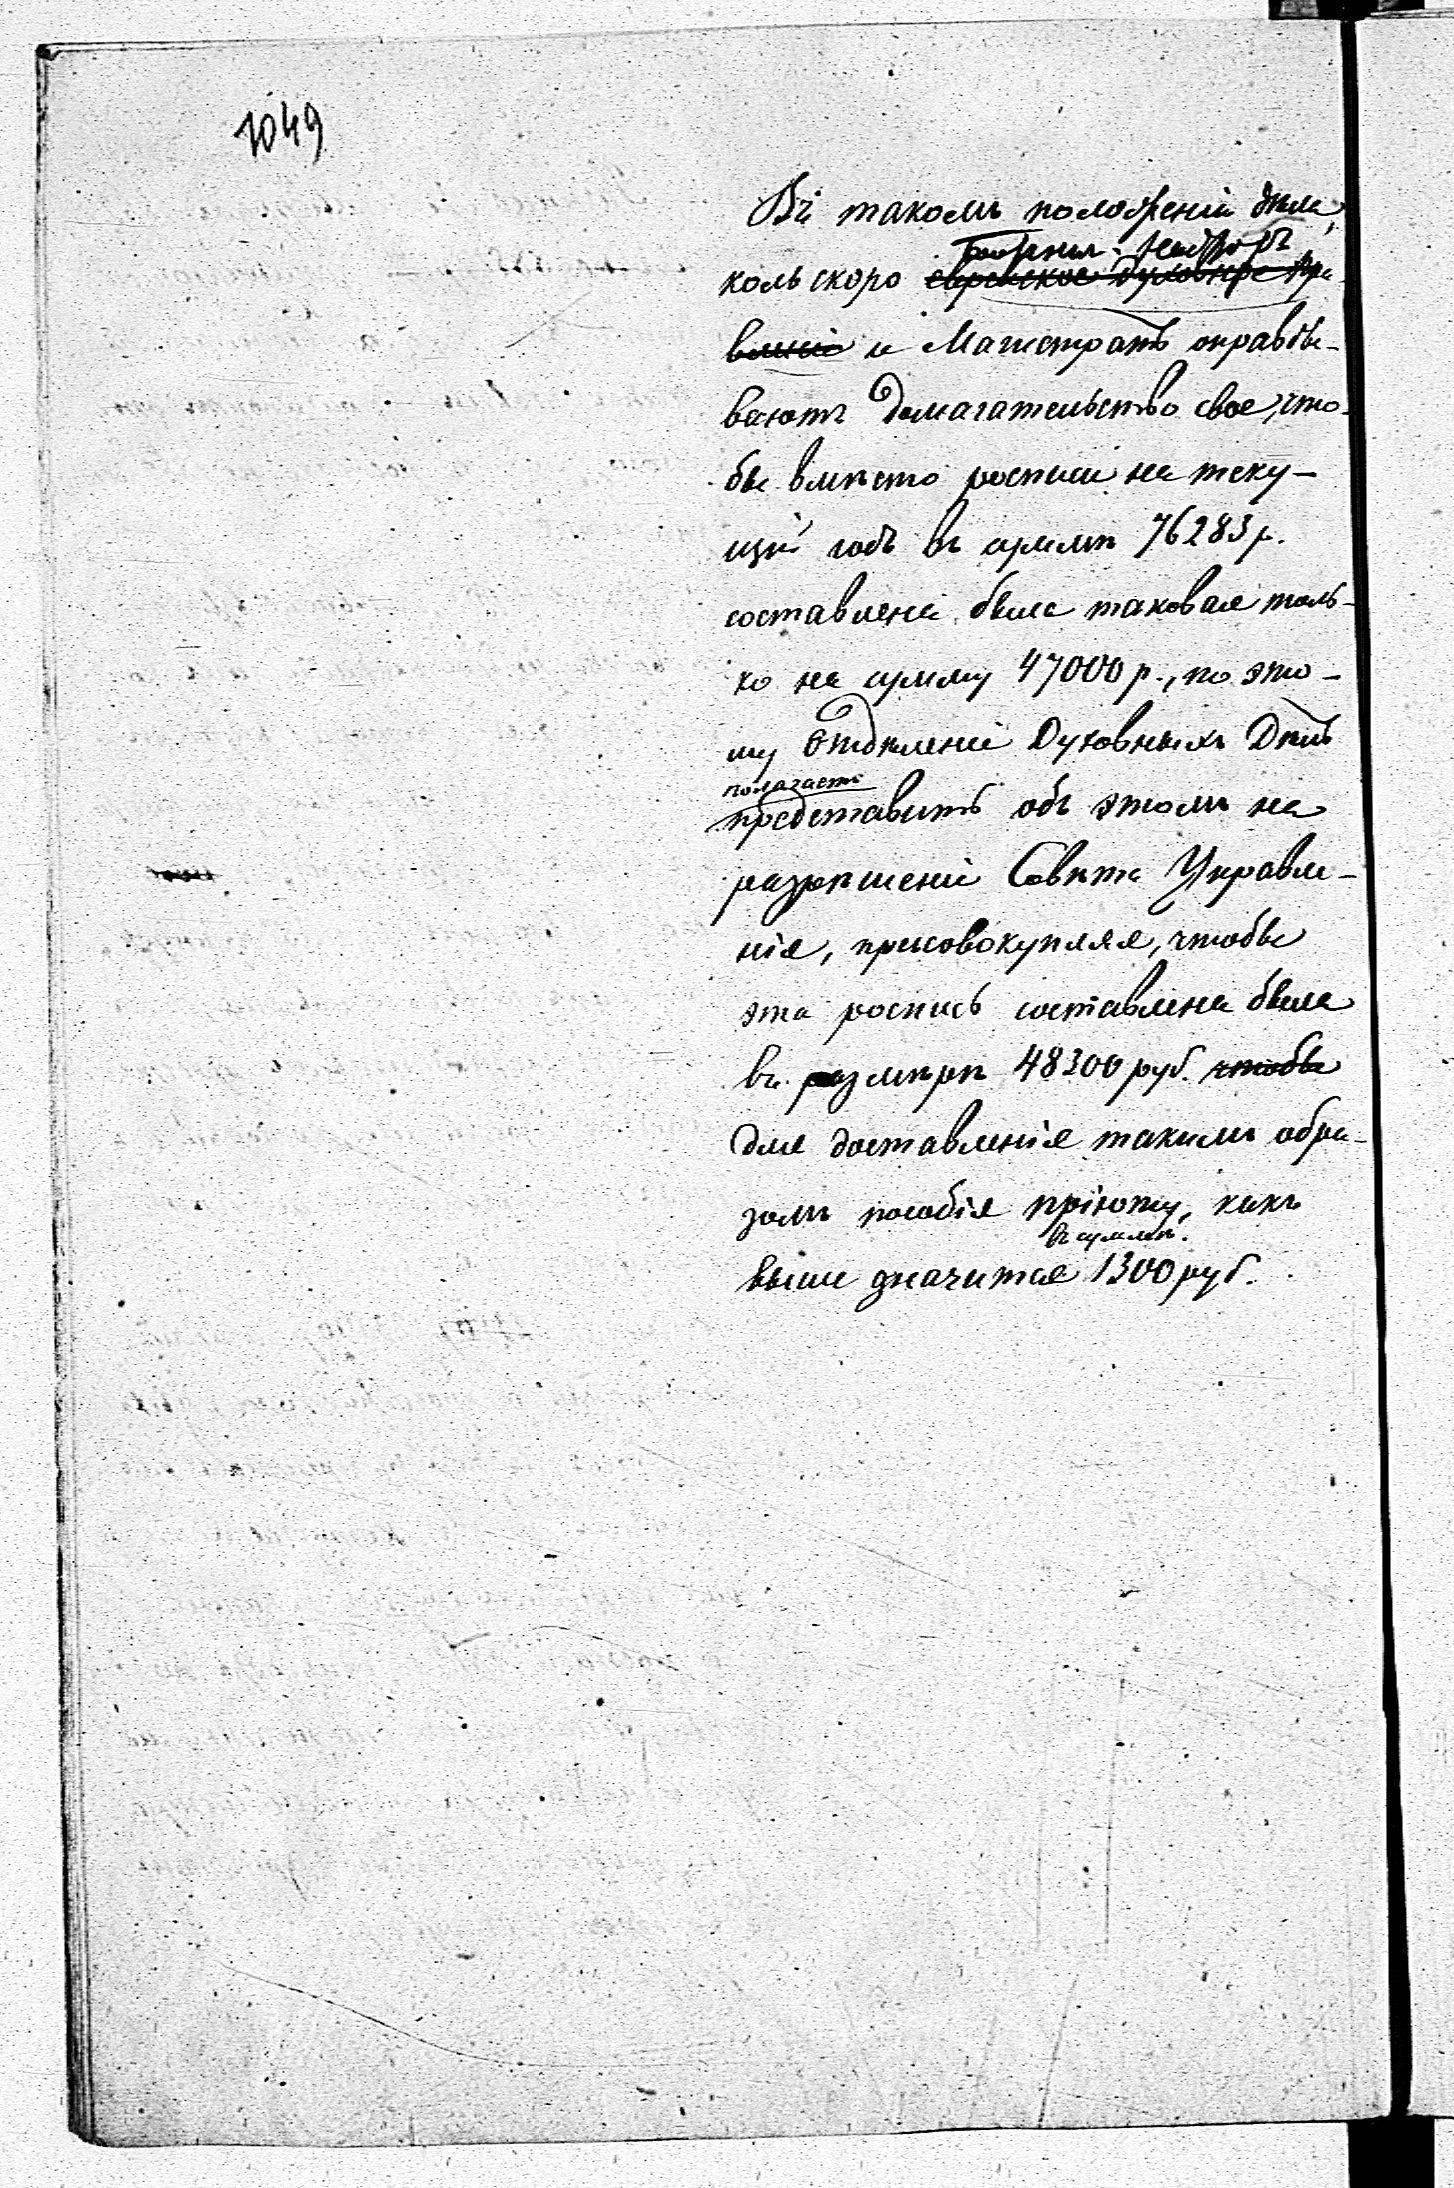 1049
Въ такомъ положеніи дѣла,
Божнич. Надзоръ
коль скоро еврейское Духовное Пра-
вленіе и Магистратъ оправды-
ваютъ домагательство свое, что-
бы вмѣсто росписи на теку-
щій годъ въ суммѣ 76283 р.
составлена была таковая толь-
ко на сумму 47000 р., по это-
му Отдѣленіе Духовныхъ Дѣлъ
полагаетъ
представить объ этомъ на
разрѣшеніе Совѣта Управле-
нія, присовокупляя, чтобы
эта роспись составлена была
въ размѣрѣ 48300 руб. чтобы
для доставленія такимъ обра-
зомъ пособія пріюту, какъ
въ суммѣ.
выше значится 1300 руб.